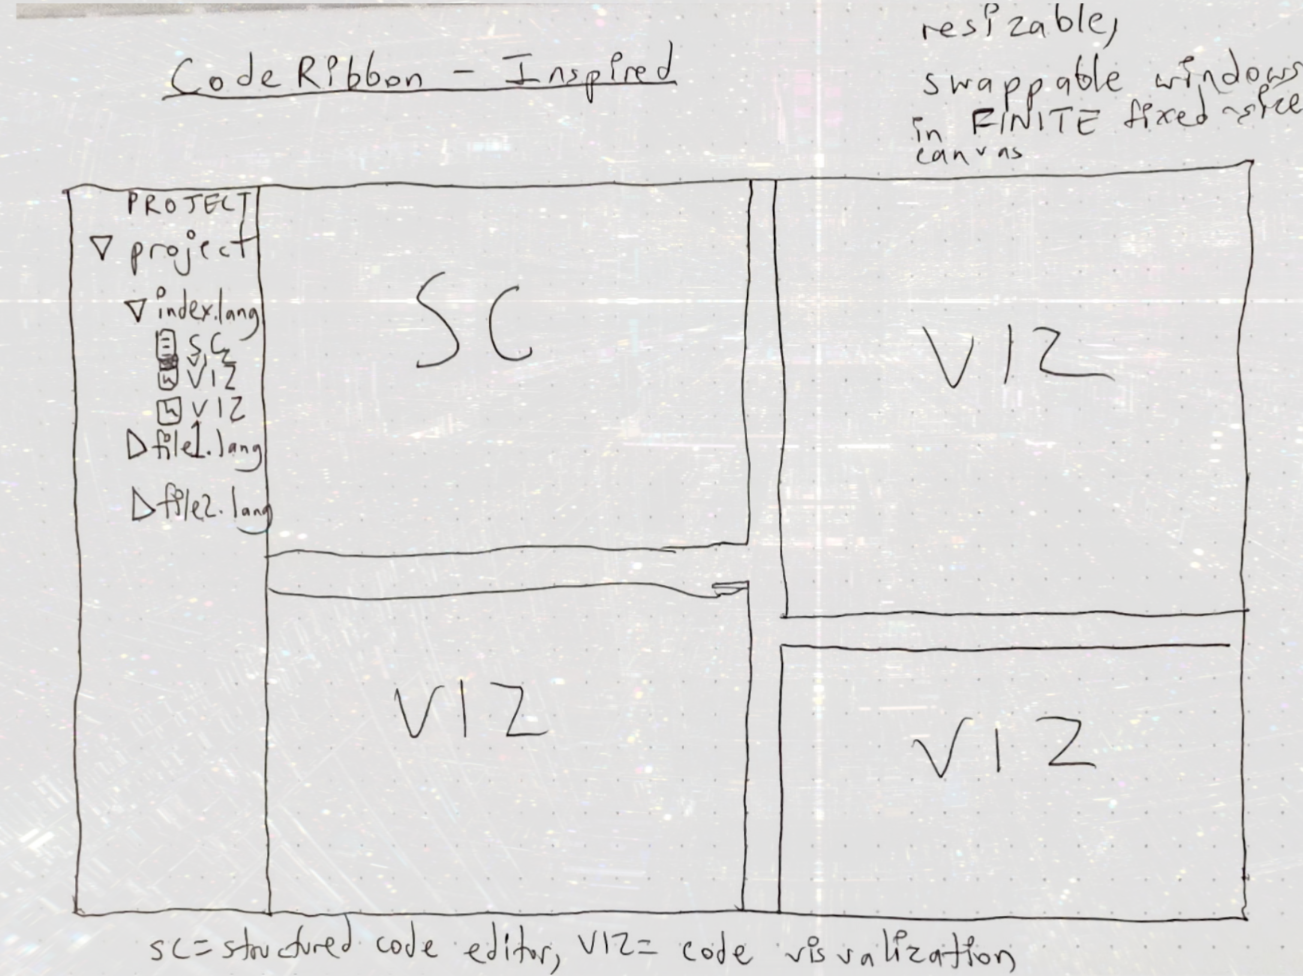 CodeRibbon - Inspired
resizable,
swappable windows
in FINITE fixed-size
canvas
PROJECT
project
index.lang
SC
VIZ
VIZ
file1.lang
file2.lang
SC
VIZ
VIZ
VIZ
SC=structured code editor, VIZ= code visualization